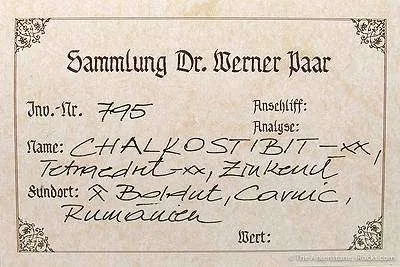 Sammlung Dr. Werner Paar
Inv.-Nr. 795 Anschliff:
Analyse:
Name: CHALKOSTIBIT-xx,
Tetraedrit-xx, Zinkenit
Fundort: ⚒ Boldut, Cavnic,
Rumänien
Wert:
© The Arkenstone, iRocks.com